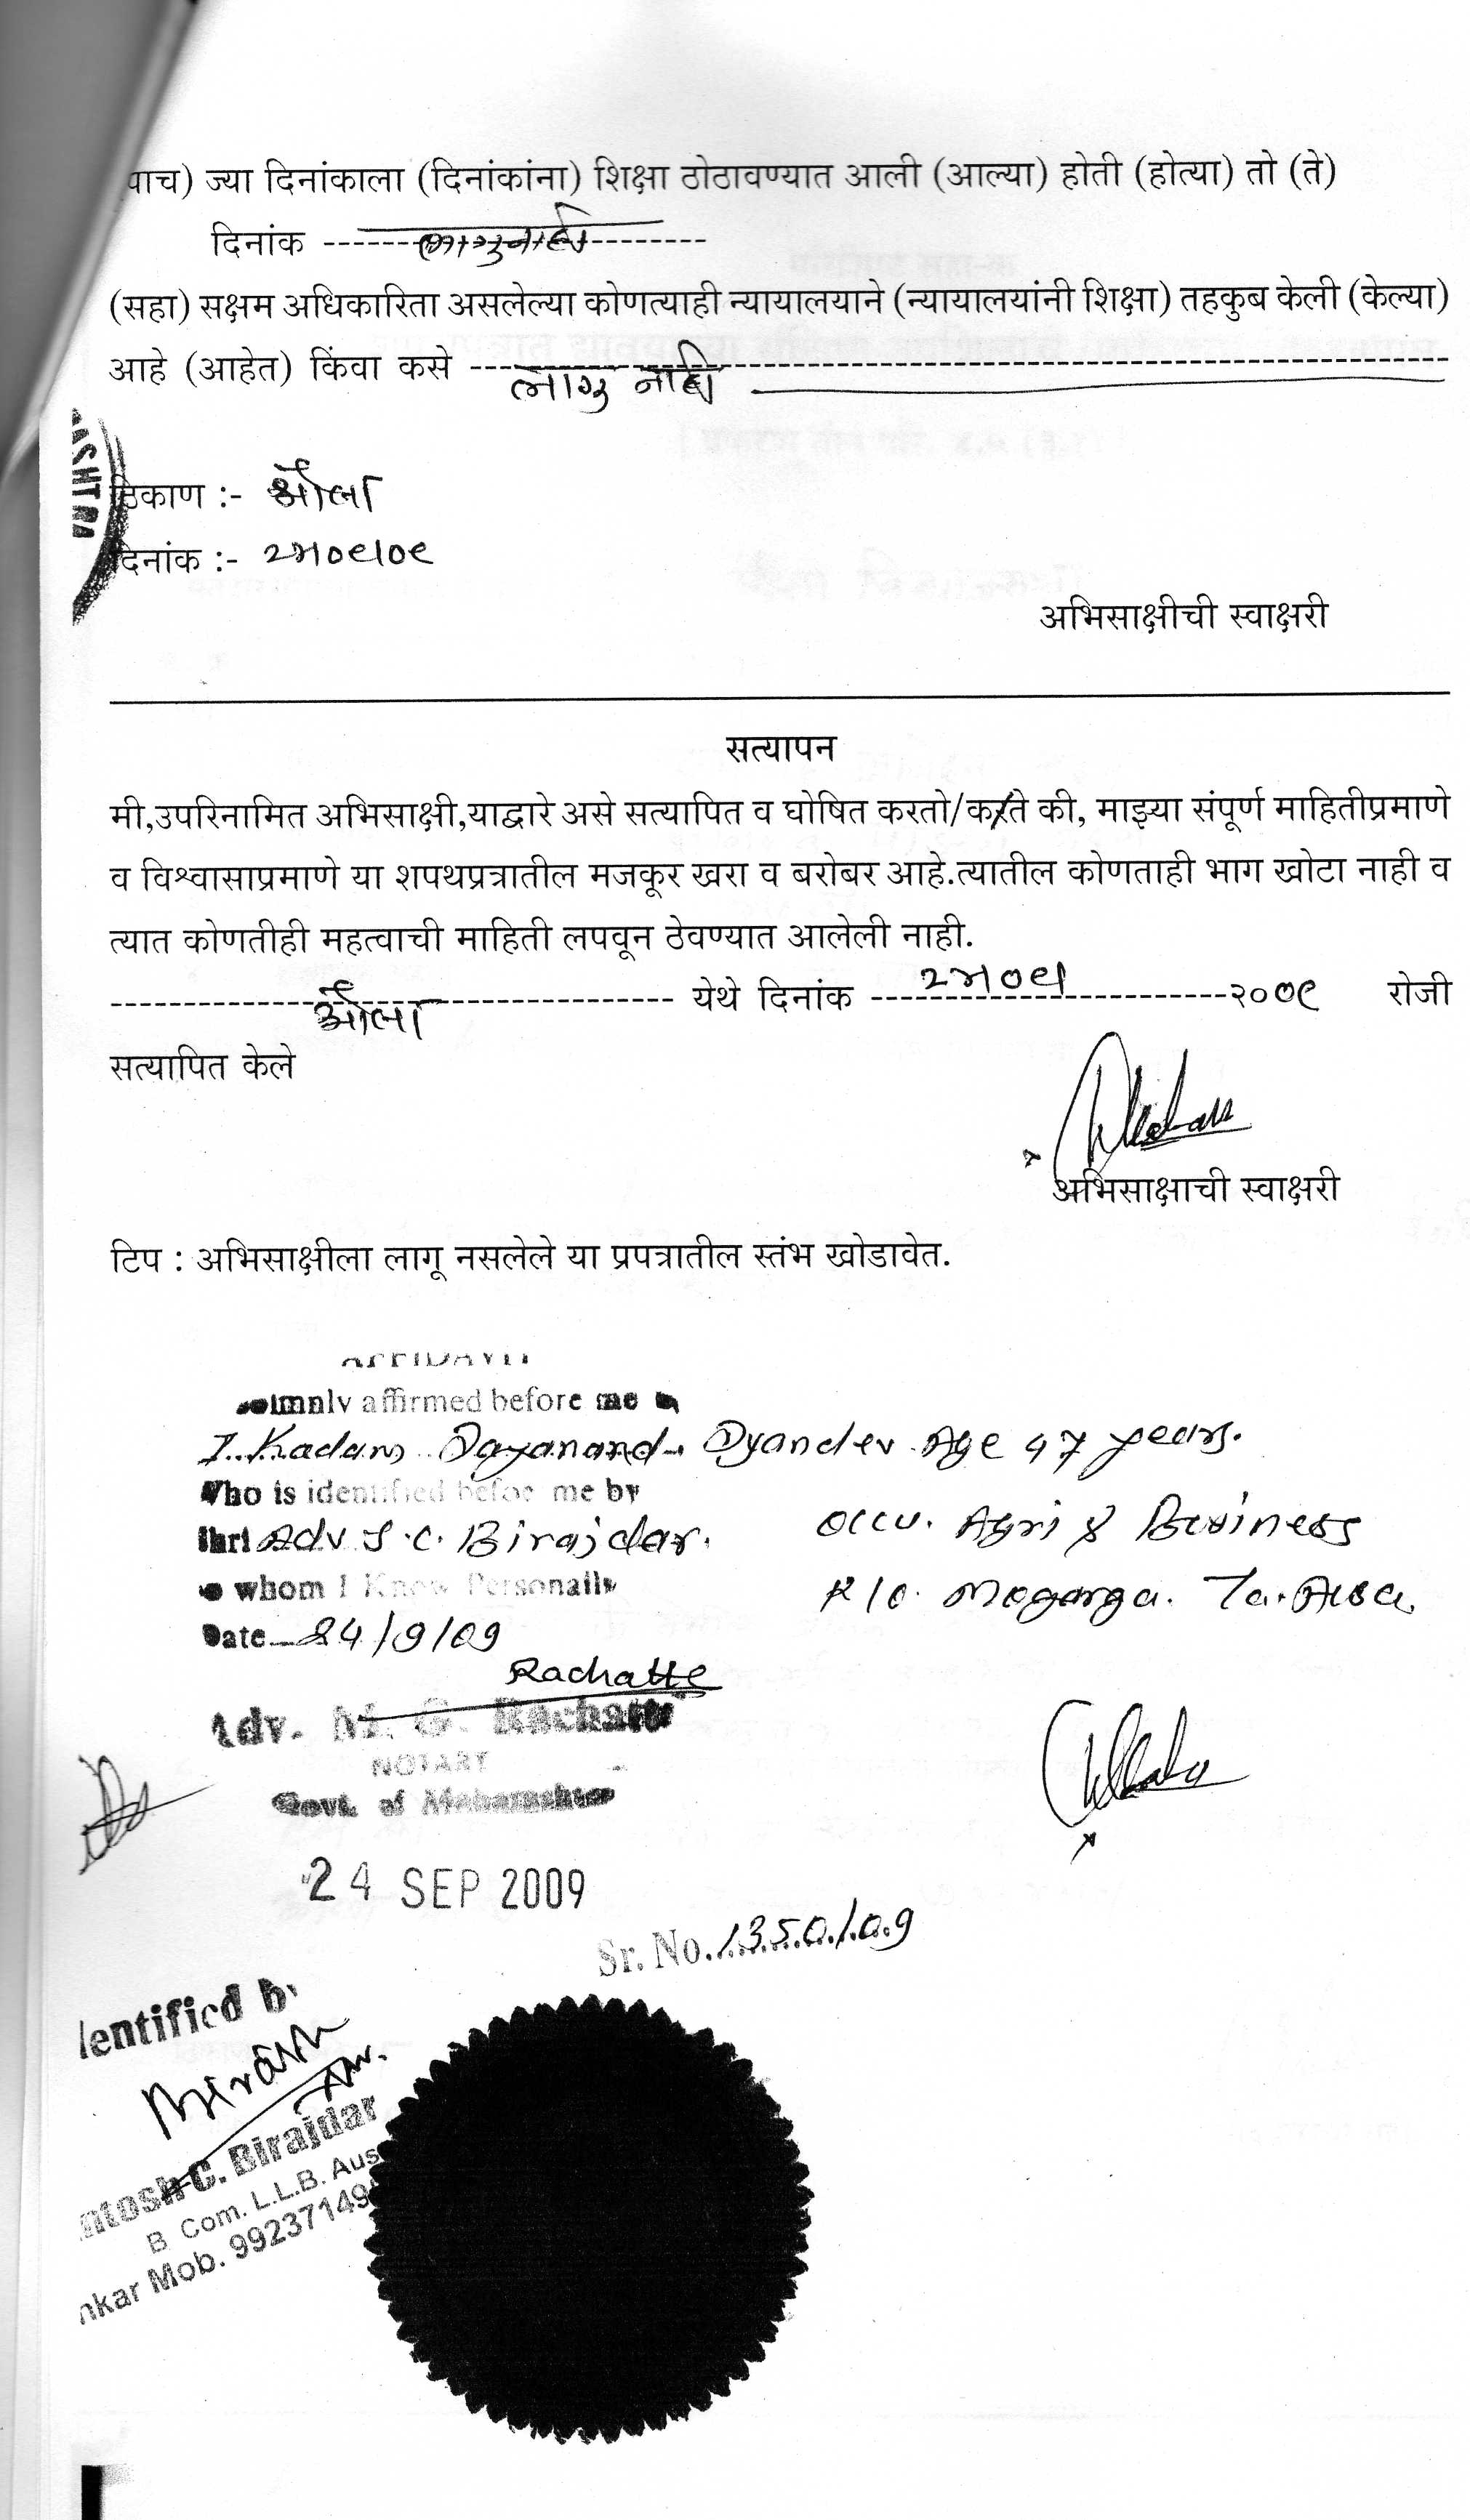 पाच) ज्या दिनांकाला (दिनांकांना) शिक्षा ठोठावण्यात आली (आल्या) होती (होत्या) तो (ते)
दिनांक ------ लागु नाही --------
(सहा) सक्षम अधिकारिता असलेल्या कोणत्याही न्यायालयाने (न्यायालयांनी शिक्षा) तहकुब केली (केल्या)
आहे (आहेत) किंवा कसे --- लागु नाही ---
ASHTRA
ठिकाण :- औसा
दिनांक :-
अभिसाक्षीची स्वाक्षरी
सत्यापन
मी,उपरिनामित अभिसाक्षी,याद्वारे असे सत्यापित व घोषित करतो/करते की, माझ्या संपूर्ण माहितीप्रमाणे
व विश्वासाप्रमाणे या शपथप्रत्रातील मजकूर खरा व बरोबर आहे.त्यातील कोणताही भाग खोटा नाही व
त्यात कोणतीही महत्वाची माहिती लपवून ठेवण्यात आलेली नाही.
--- औसा --- येथे दिनांक --- २००९ रोजी
सत्यापित केले
अभिसाक्षाची स्वाक्षरी
टिप : अभिसाक्षीला लागू नसलेले या प्रपत्रातील स्तंभ खोडावेत.
AFFIDAVIT
affirmed before me
I. Kadam Dayanand Dyandev Age 47 years.
Who is identified before me by
Shri Adv S.C. Birajdar. Occu. Agri & Business
whom I Know Personally R/o. Mogarga. Ta. Ausa
Date 24/9/09
Rachatte
Adv. M. G. Rachatte
NOTARY
Govt. of Maharashtra
24 SEP 2009
Sr. No. 1350/09
Identified by
ntosh C. Birajdar
B. Com. L.L.B. Aus
nkar Mob. 99237149